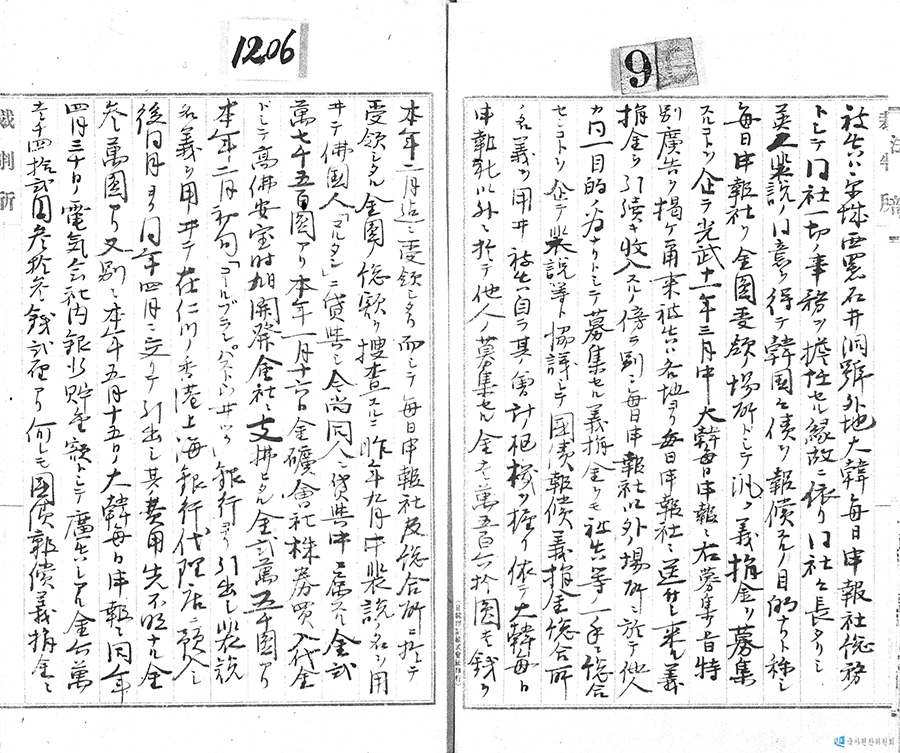 9
被告ハ京城西署石井洞號外地大韓毎日申報社総務
トシテ同社一切ノ事務ヲ擔任セル縁故ニ依リ同社々長タリシ
英人裴説ノ同意ヲ得テ韓国々債ヲ報償スルノ目的ナリト称シ
毎日申報社ヲ金圓受領場所トシテ汎ク義捐金ヲ募集
スルコトヲ企テ光武十一年三月中大韓毎日申報ニ右募集ノ旨特
別廣告ヲ掲ケ爾来被告ハ各地ヨリ毎日申報社ニ送付シ来ル義
捐金ヲ引続キ收入スルノ傍ラ別ニ毎日申報社以外場所ニ於テ他人
カ同一目的ノ為ナリトシテ募集セル義捐金ヲモ被告等ノ一手ニ総合
センコトヲ企テ裴説等ト協議シテ国債報償義捐金総合所
ノ名義ヲ用ヰ被告自ラ其ノ會計ノ枢機ヲ握リ依テ大韓毎日
申報社以外ニ於テ他人ノ募集セル金壱萬五百六拾圓壱銭ヲ
1206
本年二月迠ニ受領シタリ而シテ毎日申報社及総合所ニ於テ
受領シタル金圓ノ総額ヲ捜査スルニ昨年九月中裴説名ヲ用
ヰテ佛国人「マルタン」ニ貸與シ今尚同人ニ貸與中ニ属スル金弐
萬七千五百圓アリ本年一月十六日金礦會社株券買入代金
トシテ高佛安宝時旭開発會社ニ支拂ヒタル金弐萬五千圓アリ
本年二月初旬コールブランバストウ井ック銀行ヨリ引出シ裴説
名義ヲ用ヰテ在仁川ノ香港上海銀行代理店ニ預入シ
後同月ヨリ同年四月ニ亘リテ引出シ其ノ費用先不明ナル金
参萬圓アリ又別ニ本年五月十五日ノ大韓毎日申報ニ同年
四月三十日ノ電気会社内銀行貯金額トシテ廣告シアル金六萬
壱千四拾弐圓参拾参銭弐厘アリ何レモ国債報償義捐金ニ
裁判所
국사편찬위원회